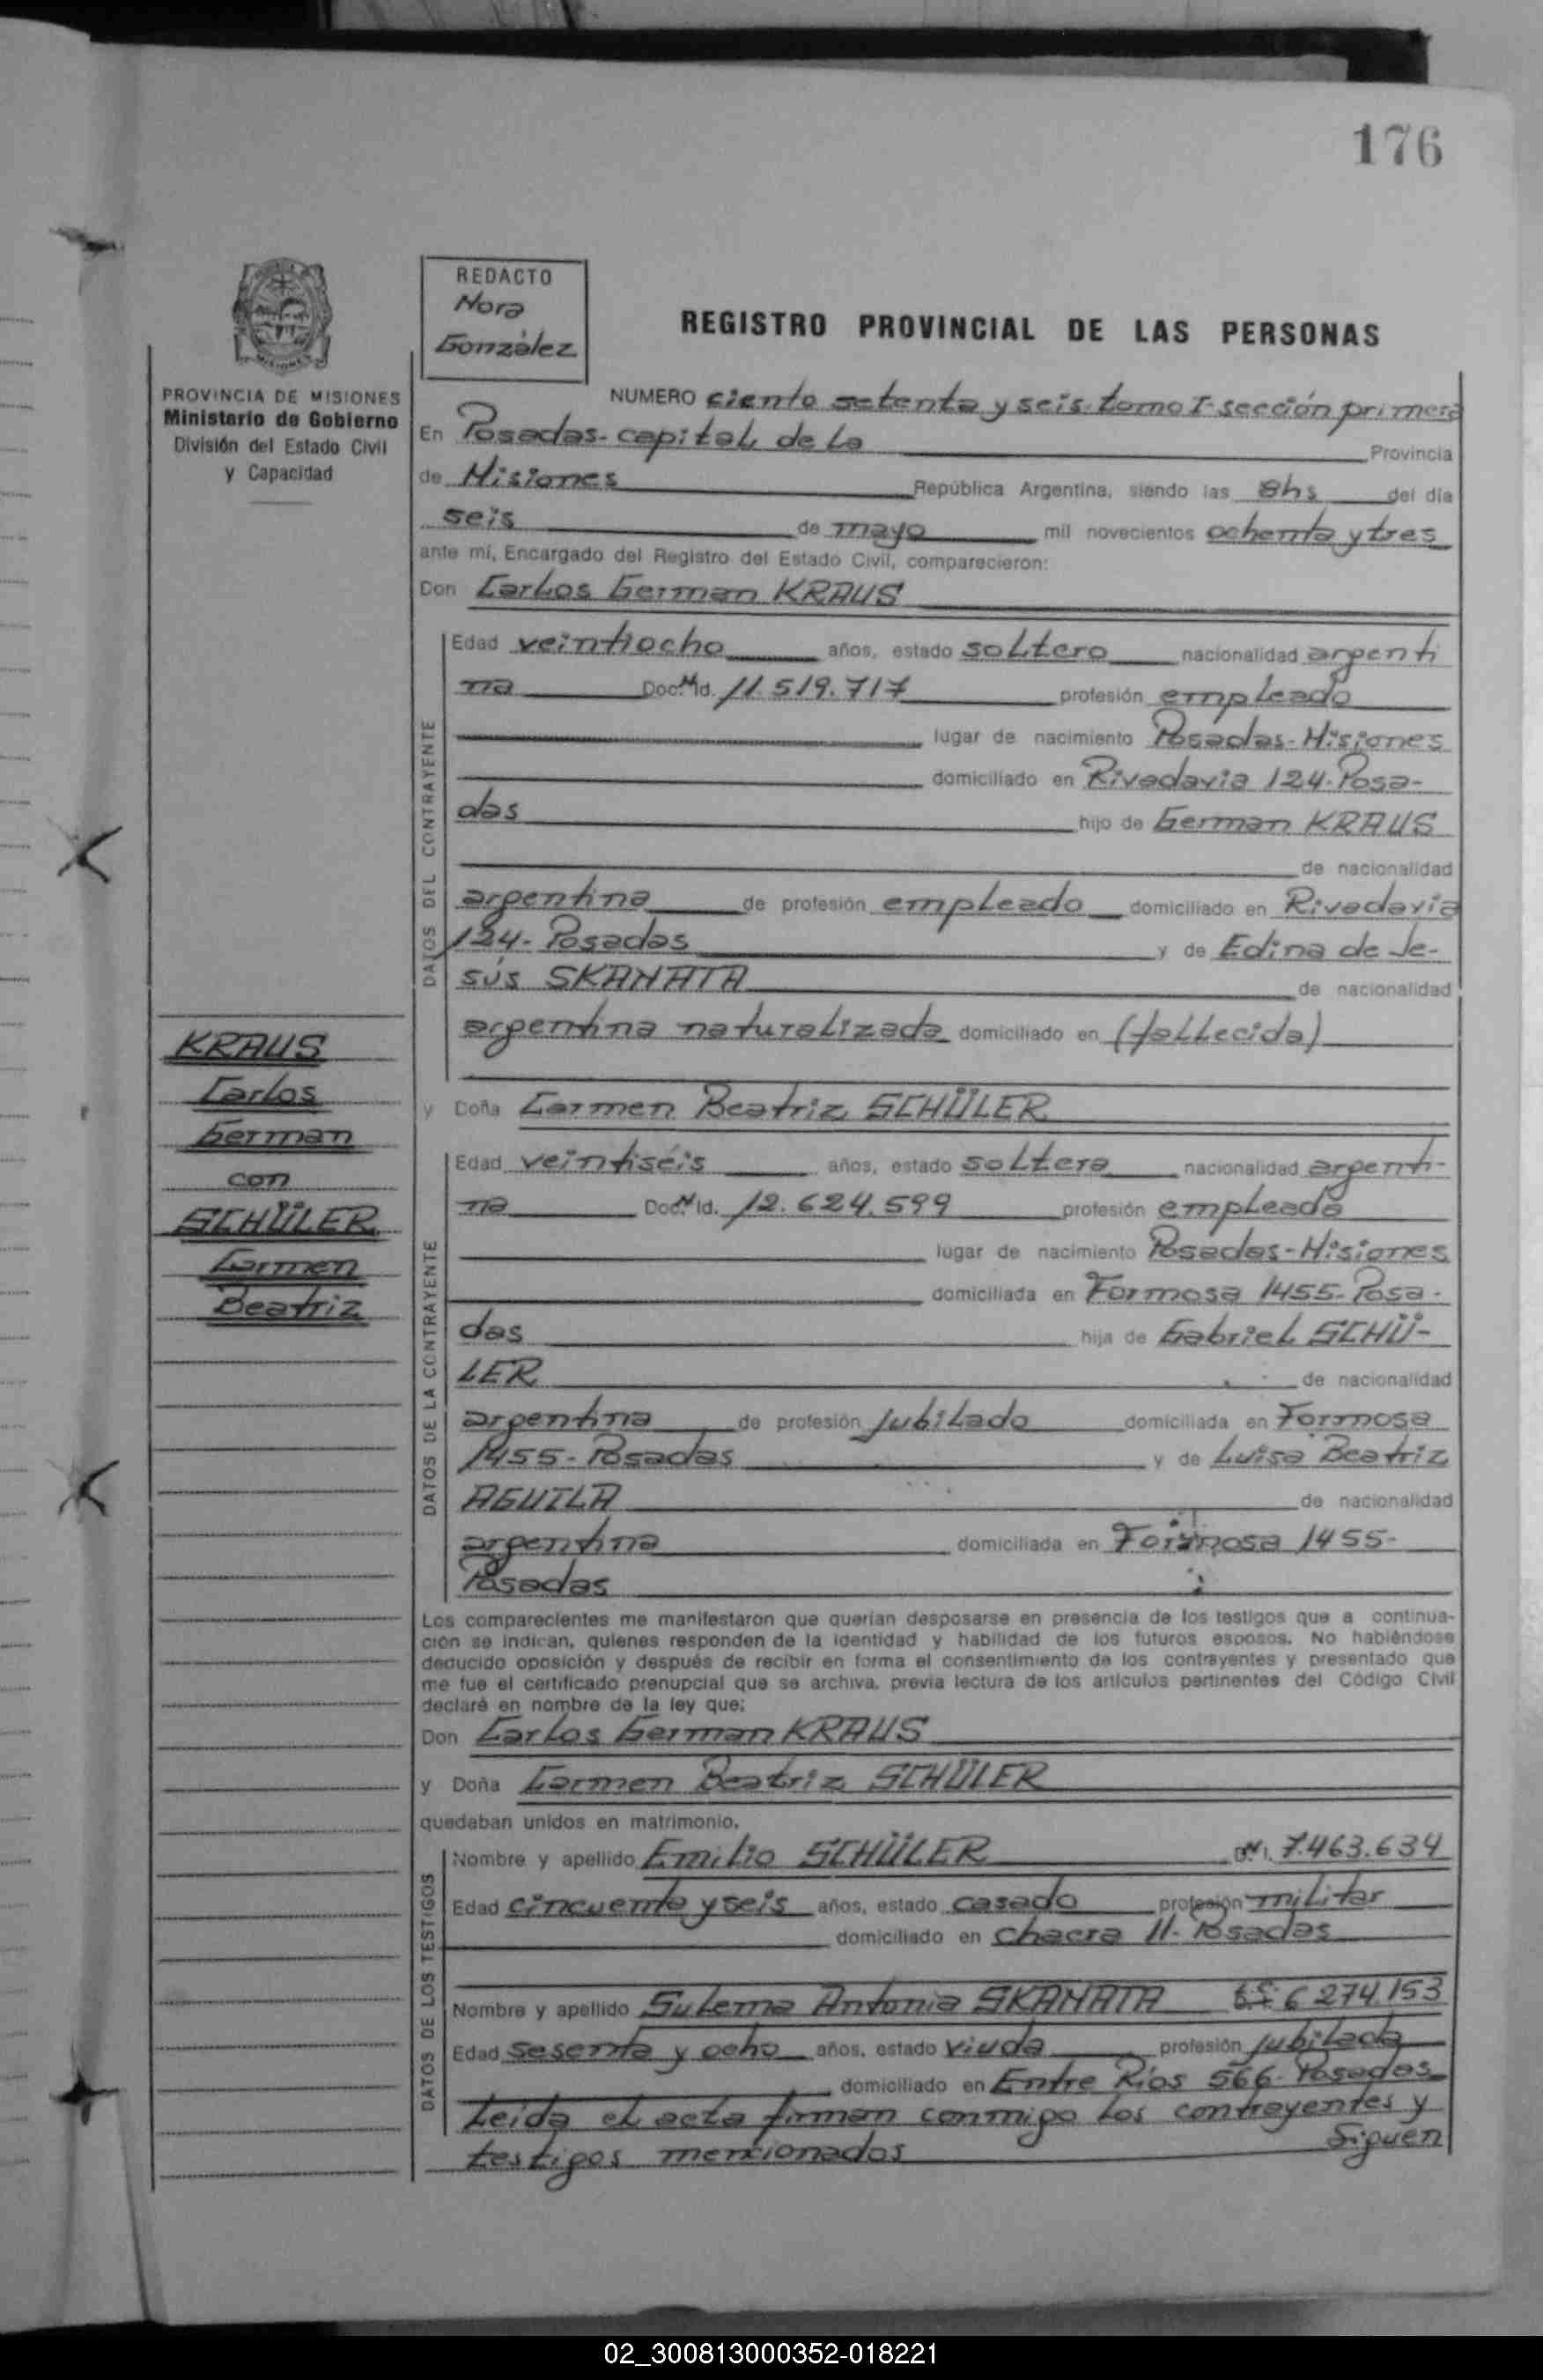 176
REDACTO
Nora
González
REGISTRO PROVINCIAL DE LAS PERSONAS
PROVINCIA DE MISIONES
Ministerio de Gobierno
División del Estado Civil
y Capacidad
NUMERO ciento setenta y seis. tomo I-sección primera
En Posadas-capital de la Provincia
de Misiones República Argentina, siendo las 8hs del día
seis de mayo mil novecientos ochenta y tres
ante mí, Encargado del Registro del Estado Civil, comparecieron:
Don Carlos German KRAUS
DATOS DEL CONTRAYENTE
Edad veintiocho años, estado soltero nacionalidad argenti
na Doc. Id. 11.519.717 profesión empleado
lugar de nacimiento Posadas-Misiones
domiciliado en Rivadavia 124-Posa-
das hijo de German KRAUS
de nacionalidad
argentina de profesión empleado domiciliado en Rivadavia
124- Posadas y de Edina de Je-
sús SKAMATA de nacionalidad
argentina naturalizada domiciliado en (fallecida)
KRAUS
Carlos
German
con
SCHÜLER
Carmen
Beatriz
y Doña Carmen Beatriz SCHÜLER
DATOS DE LA CONTRAYENTE
Edad veintiséis años, estado soltera nacionalidad argenti-
na Doc. Id. 12.624.599 profesión empleada
lugar de nacimiento Posadas-Misiones
domiciliada en Formosa 1455-Posa-
das hija de Gabriel SCHÜ-
LER de nacionalidad
argentina de profesión jubilado domiciliada en Formosa
1455-Posadas y de Luisa Beatriz
AGUILA de nacionalidad
argentina domiciliada en Formosa 1455-
Posadas
Los comparecientes me manifestaron que querían desposarse en presencia de los testigos que a continua-
ción se indican, quienes responden de la identidad y habilidad de los futuros esposos. No habiéndose
deducido oposición y después de recibir en forma el consentimiento de los contrayentes y presentado que
me fue el certificado prenupcial que se archiva, previa lectura de los artículos pertinentes del Código Civil
declaré en nombre de la ley que:
Don Carlos German KRAUS
y Doña Carmen Beatriz SCHÜLER
quedaban unidos en matrimonio.
DATOS DE LOS TESTIGOS
Nombre y apellido Emilio SCHÜLER 7.463.634
Edad cincuenta y seis años, estado casado profesión militar
domiciliado en chacra 11-Posadas
Nombre y apellido Sulema Antonia SKAMATA 6 274.153
Edad sesenta y ocho años, estado viuda profesión jubilada
domiciliado en Entre Ríos 566-Posadas
Leída el acta firman conmigo los contrayentes y
testigos mencionados Siguen
02_300813000352-018221